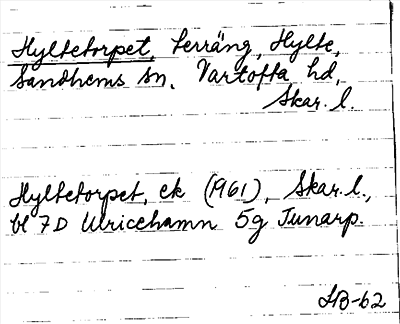 Hyltetorpet, terräng, Hylte,
Sandhems sn, Vartofta hd,
Skar. l.
Hyltetorpet, ek (1961), Skar. l.,
bl 7D Ulricehamn 5g Junarp.
LB-62